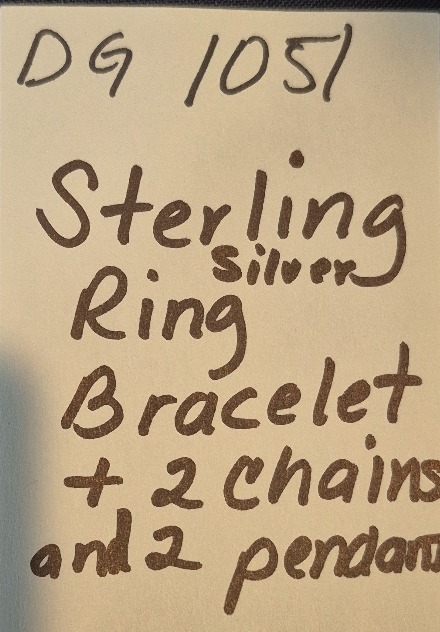 DG 1051
Sterling
Silver
Ring
Bracelet
+ 2 chains
and 2 pendant